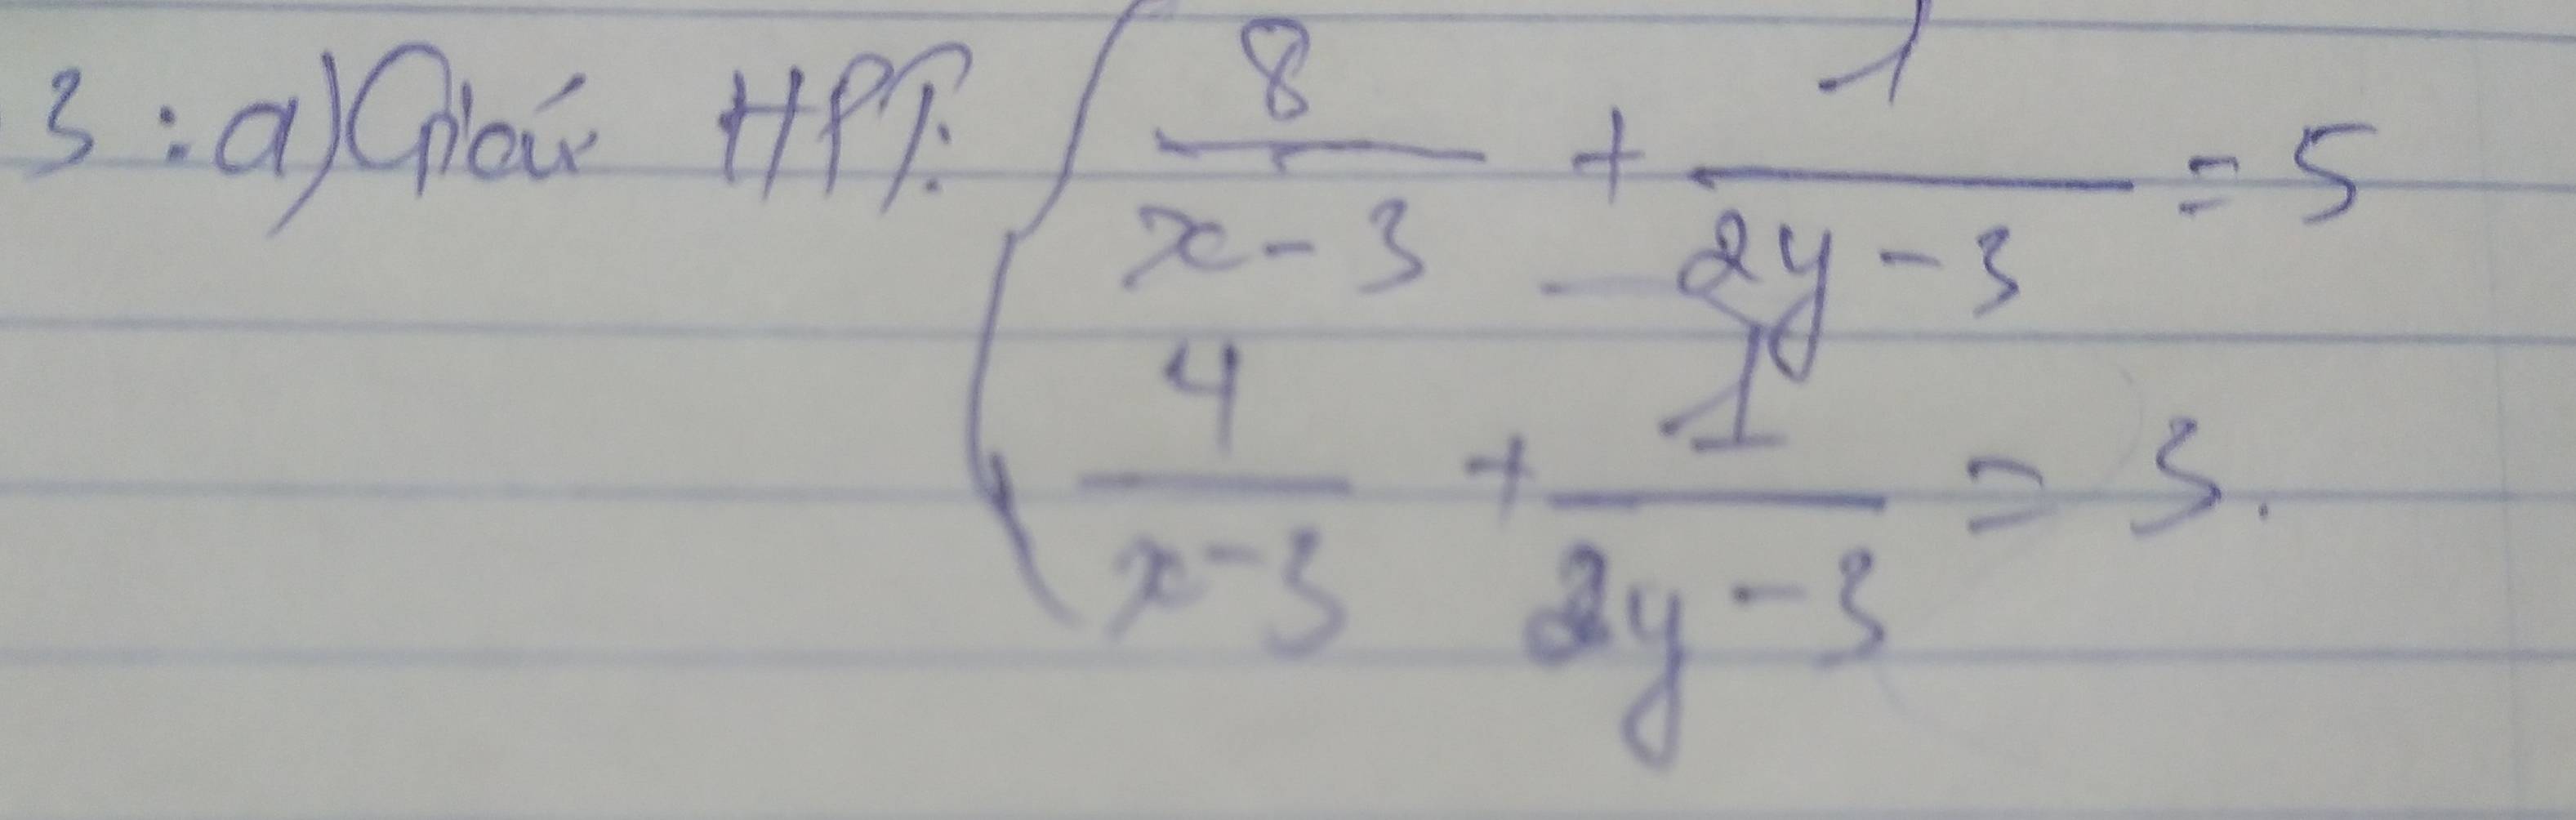 3 : a) Giải HPT: { 8/(x-3) + 1/(2y-3) = 5
4/(x-3) + 1/(2y-3) = 3.